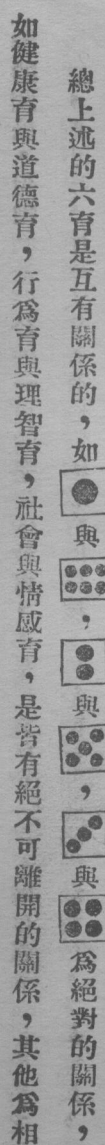 總上述的六育是互有關係的，如⚀與⚅，⚁與⚄，⚂與⚃爲絕對的關係，
如健康育與道德育，行爲育與理智育，社會與情感育，是皆有絕不可離開的關係，其他爲相